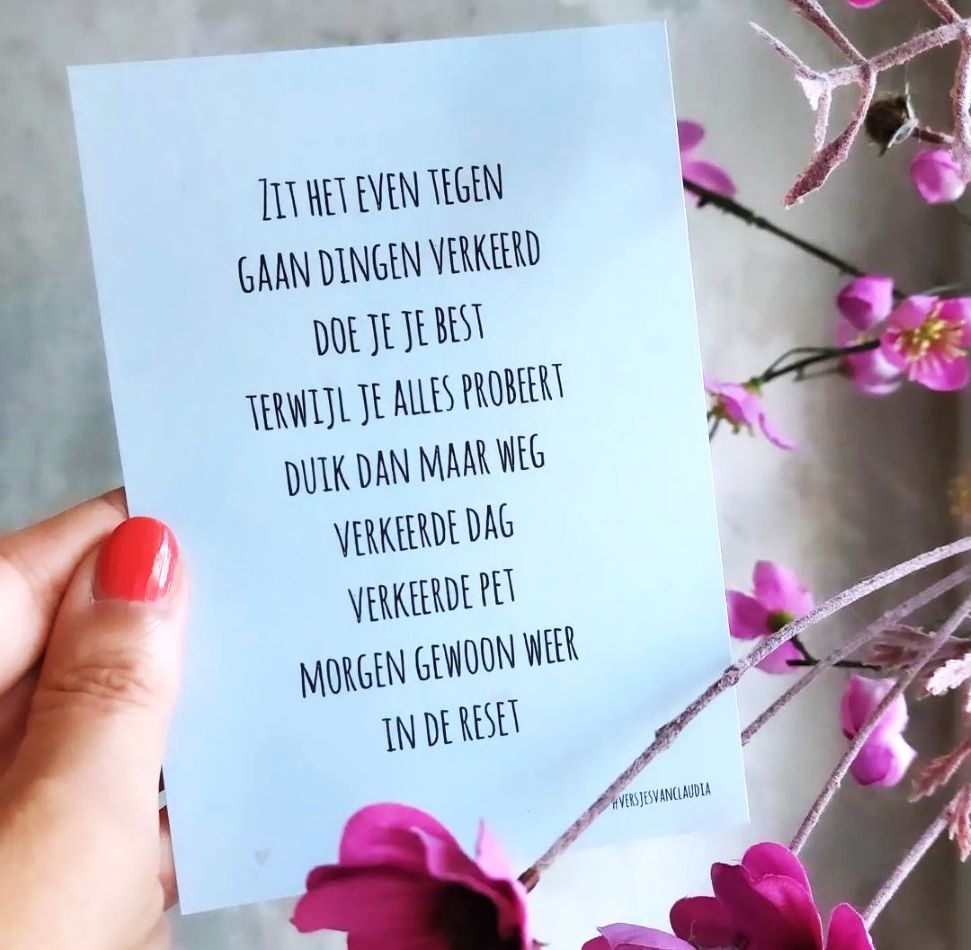 ZIT HET EVEN TEGEN
GAAN DINGEN VERKEERD
DOE JE JE BEST
TERWIJL JE ALLES PROBEERT
DUIK DAN MAAR WEG
VERKEERDE DAG
VERKEERDE PET
MORGEN GEWOON WEER
IN DE RESET
#VERSJESVANCLAUDIA